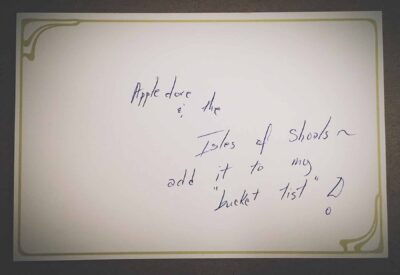 Appledore
& the
Isles of Shoals ~
add it to my
"bucket list"